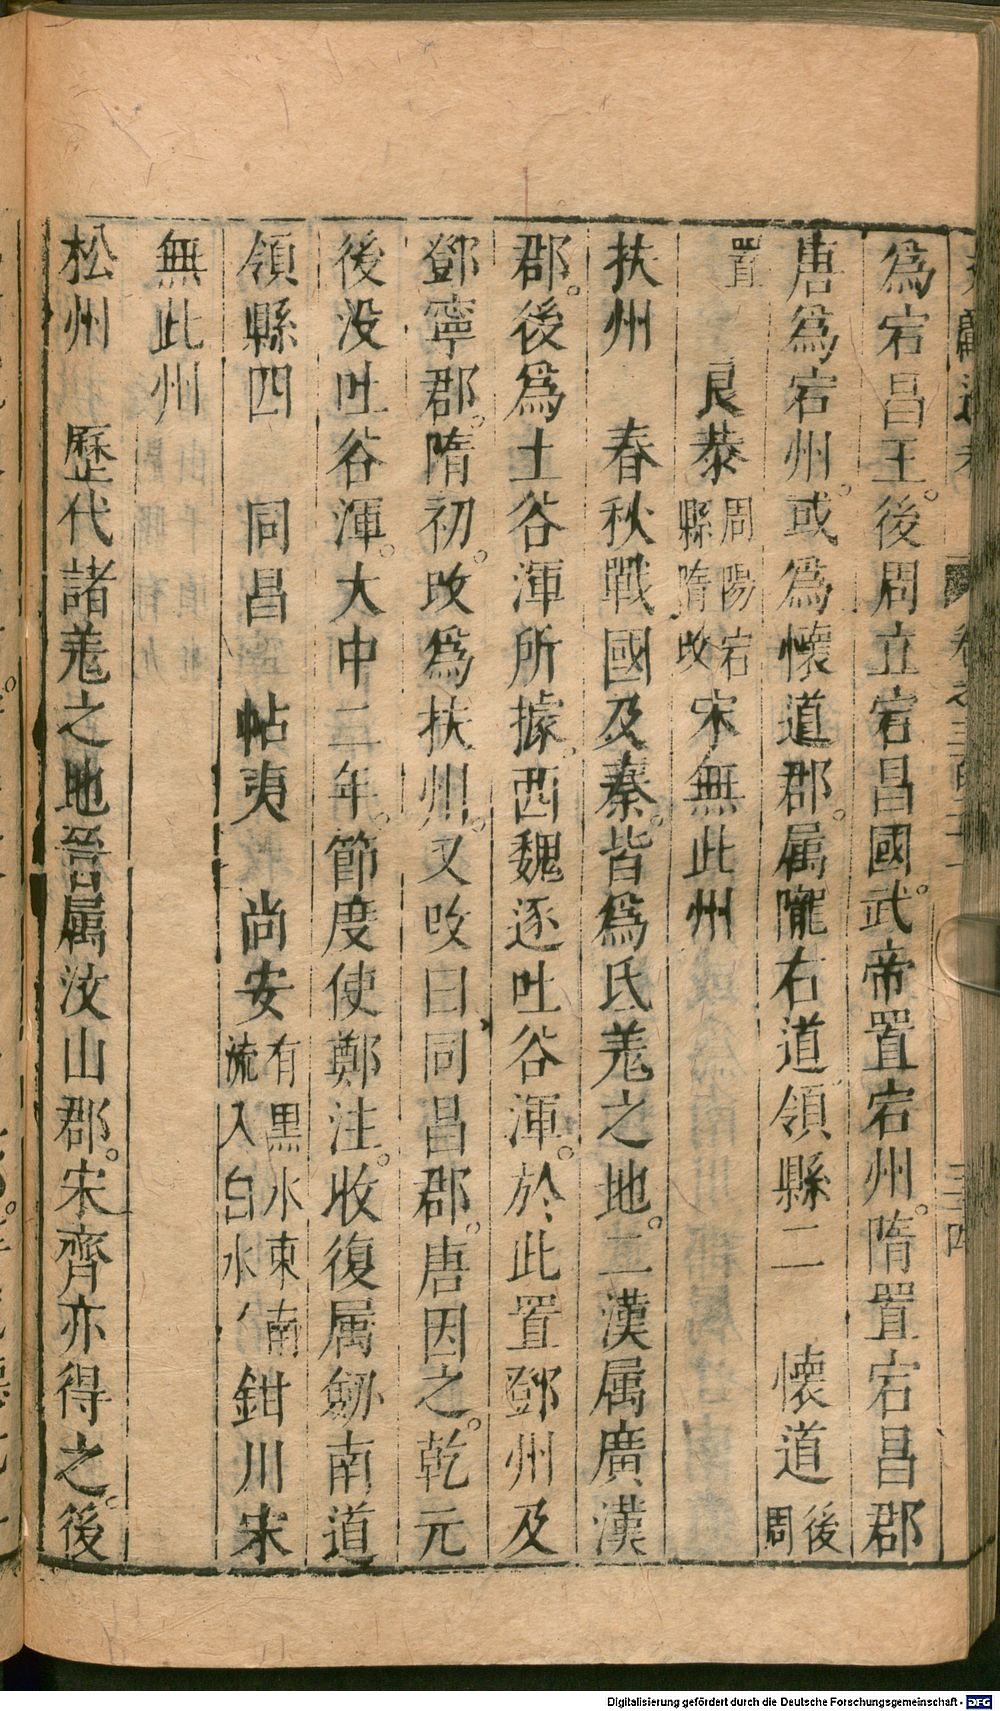 爲宕昌王。後周立宕昌國。武帝置宕州。隋置宕昌郡
唐爲宕州。或爲懷道郡。属隴右道領縣二　懷道後周
置　良恭周陽宕縣隋改宋無此州
扶州　春秋戰國及秦。皆爲氐羌之地。二漢属廣漢
郡。後爲土谷渾所據。西魏逐吐谷渾。於此置鄧州及
鄧寧郡。隋初。改爲扶州。又改曰同昌郡。唐因之。乾元
後没吐谷渾。大中二年。節度使鄭注。收復属劒南道
領縣四　同昌　帖夷　尚安有黒水東南流入白水鉗川宋
無此州
松州　歷代諸羌之地晉属汶山郡。宋齊亦得之。後
Digitalisierung gefördert durch die Deutsche Forschungsgemeinschaft - DFG